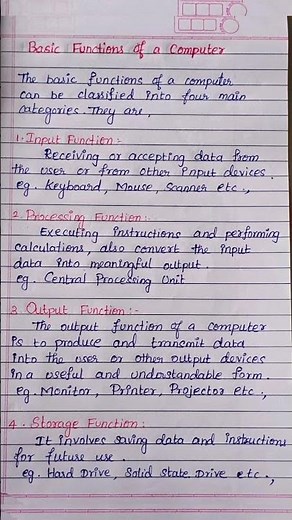 Basic Functions of a Computer
The basic functions of a computer
can be classified into four main
categories. They are,
1. Input Function :-
Receiving or accepting data from
the user or from other input devices.
eg. Keyboard, Mouse, Scanner etc.,
2. Processing Function :-
Executing instructions and performing
calculations, also convert the input
data into meaningful output.
eg. Central Processing Unit
3. Output Function :-
The output function of a computer
is to produce and transmit data
into the user or other output devices
in a useful and understandable form.
Eg. Monitor, Printer, Projector etc.,
4. Storage Function :
It involves saving data and instructions
for future use.
eg. Hard Drive, Solid State Drive etc.,